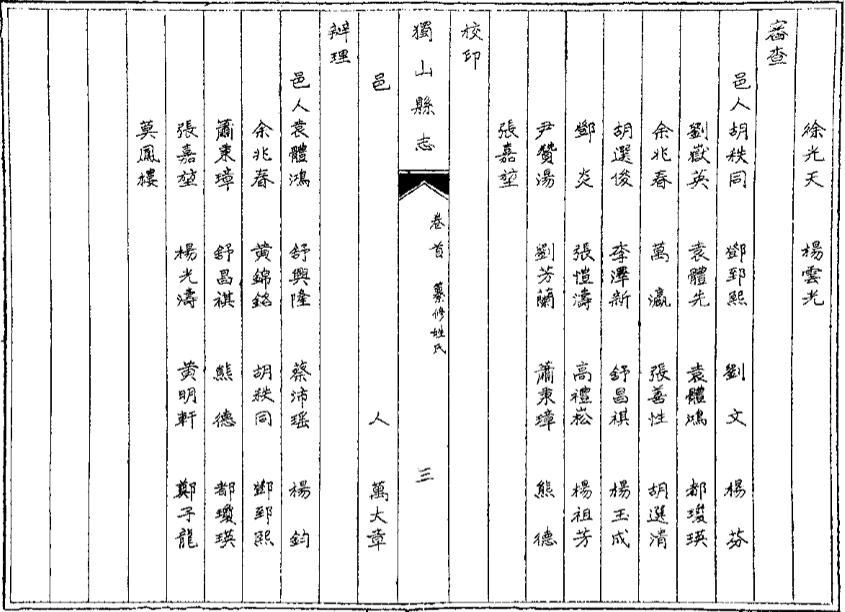 徐光天 楊雲光
審查
邑人胡秩同 鄧郅熙 劉文 楊芬
劉嶽英 袁體先 袁體鴻 都瓊瑛
余兆春 萬瀛 張善性 胡選清
胡選俊 李澤新 舒昌祺 楊玉成
鄧炎 張愷濤 高禮崧 楊祖芳
尹贊湯 劉芳蘭 蕭東璋 熊德
張嘉堃
校印
獨山縣志 卷首 纂修姓氏 三
邑人 萬大章
辦理
邑人袁體鴻 舒興隆 蔡沛瑶 楊鈞
余兆春 黃錦銘 胡秩同 鄧郅熙
蕭東璋 舒昌祺 熊德 都瓊瑛
張嘉堃 楊光濤 黃明軒 鄭子龍
莫鳳樓